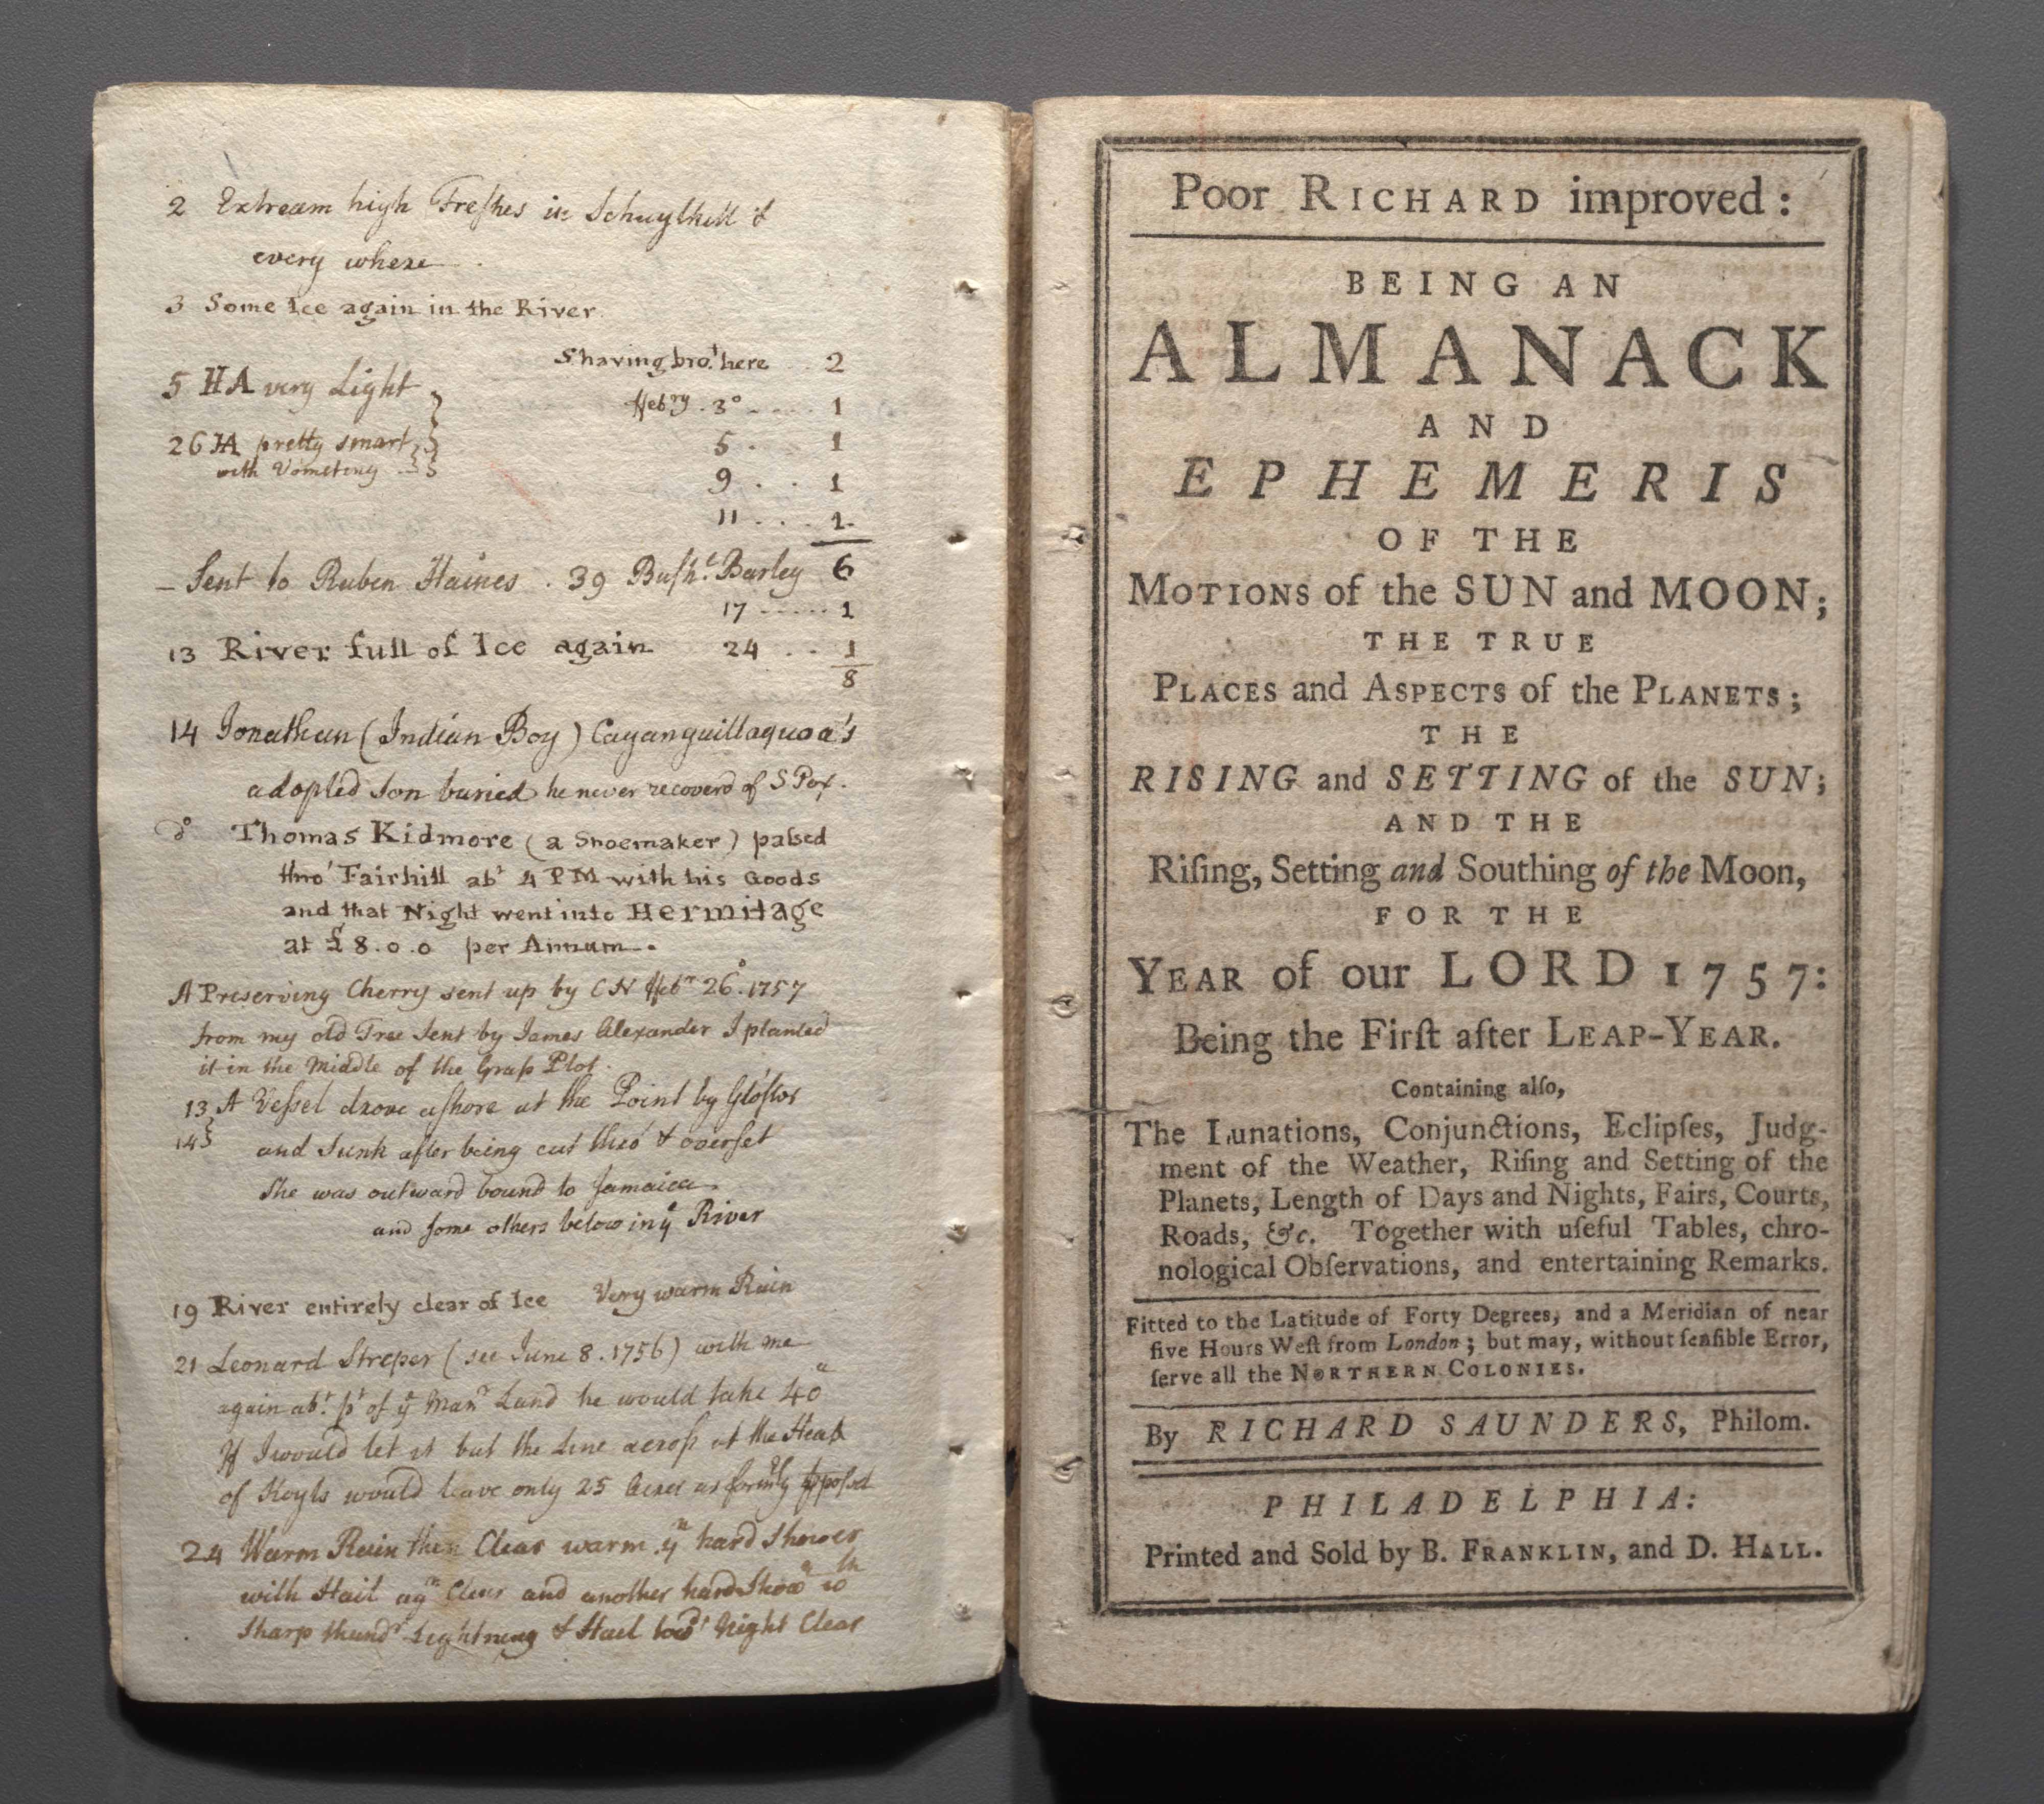 2 Extream high Freshes in Schuylkill &
every where
3 Some Ice again in the River
Shaving bro.t here .. 2
5 HA very Light
Feb.ry . 3° .... 1
26 HA pretty smart
5 . 1
with Vometing
9 . . . 1
11 . . . . 1
Sent to Ruben Haines . 39 Bush.l Barley 6
17 ..... 1
13 River full of Ice again 24 .. 1
8
14 Jonathan (Indian Boy) Cayanguillaquoa's
adopted Son buried he never recoverd of S Pox.
d° Thomas Kidmore (a Shoemaker) passed
thro' Fairhill ab.t 4 PM with his Goods
and that Night went into Hermitage
at £8.0.0 per Annum.
A Preserving Cherry sent up by CN Feb.r 26°. 1757
from my old Tree sent by James Alexander I planted
it in the Middle of the Grass Plot.
13 A Vessel drove ashore at the Point by Gloster
14 and Sunk after being cut thro' & overset
She was outward bound to Jamaica
and some others below in ye River
19 River entirely clear of Ice Very warm Rain
21 Leonard Streper (see June 8. 1756) with me
again ab.t p.t of ye Man.r Land he would take 40 a
If I would let it but the Line across at the Head
of Keyls would leave only 25 Acres as form.ly
24 Warm Rain then Clear warm yn hard Shower
with Hail ag.n Clear and another hard Show.r wth
Sharp thund.r Lightning & Hail tow.d Night Clear
Poor RICHARD improved:
BEING AN
ALMANACK
AND
EPHEMERIS
OF THE
MOTIONS of the SUN and MOON;
THE TRUE
PLACES and ASPECTS of the PLANETS;
THE
RISING and SETTING of the SUN;
AND THE
Riſing, Setting and Southing of the Moon,
FOR THE
YEAR of our LORD 1757:
Being the Firſt after LEAP-YEAR.
Containing alſo,
The Lunations, Conjunctions, Eclipſes, Judg-
ment of the Weather, Riſing and Setting of the
Planets, Length of Days and Nights, Fairs, Courts,
Roads, &c. Together with uſeful Tables, chro-
nological Obſervations, and entertaining Remarks.
Fitted to the Latitude of Forty Degrees, and a Meridian of near
five Hours Weſt from London; but may, without ſenſible Error,
ſerve all the NORTHERN COLONIES.
By RICHARD SAUNDERS, Philom.
PHILADELPHIA:
Printed and Sold by B. FRANKLIN, and D. HALL.